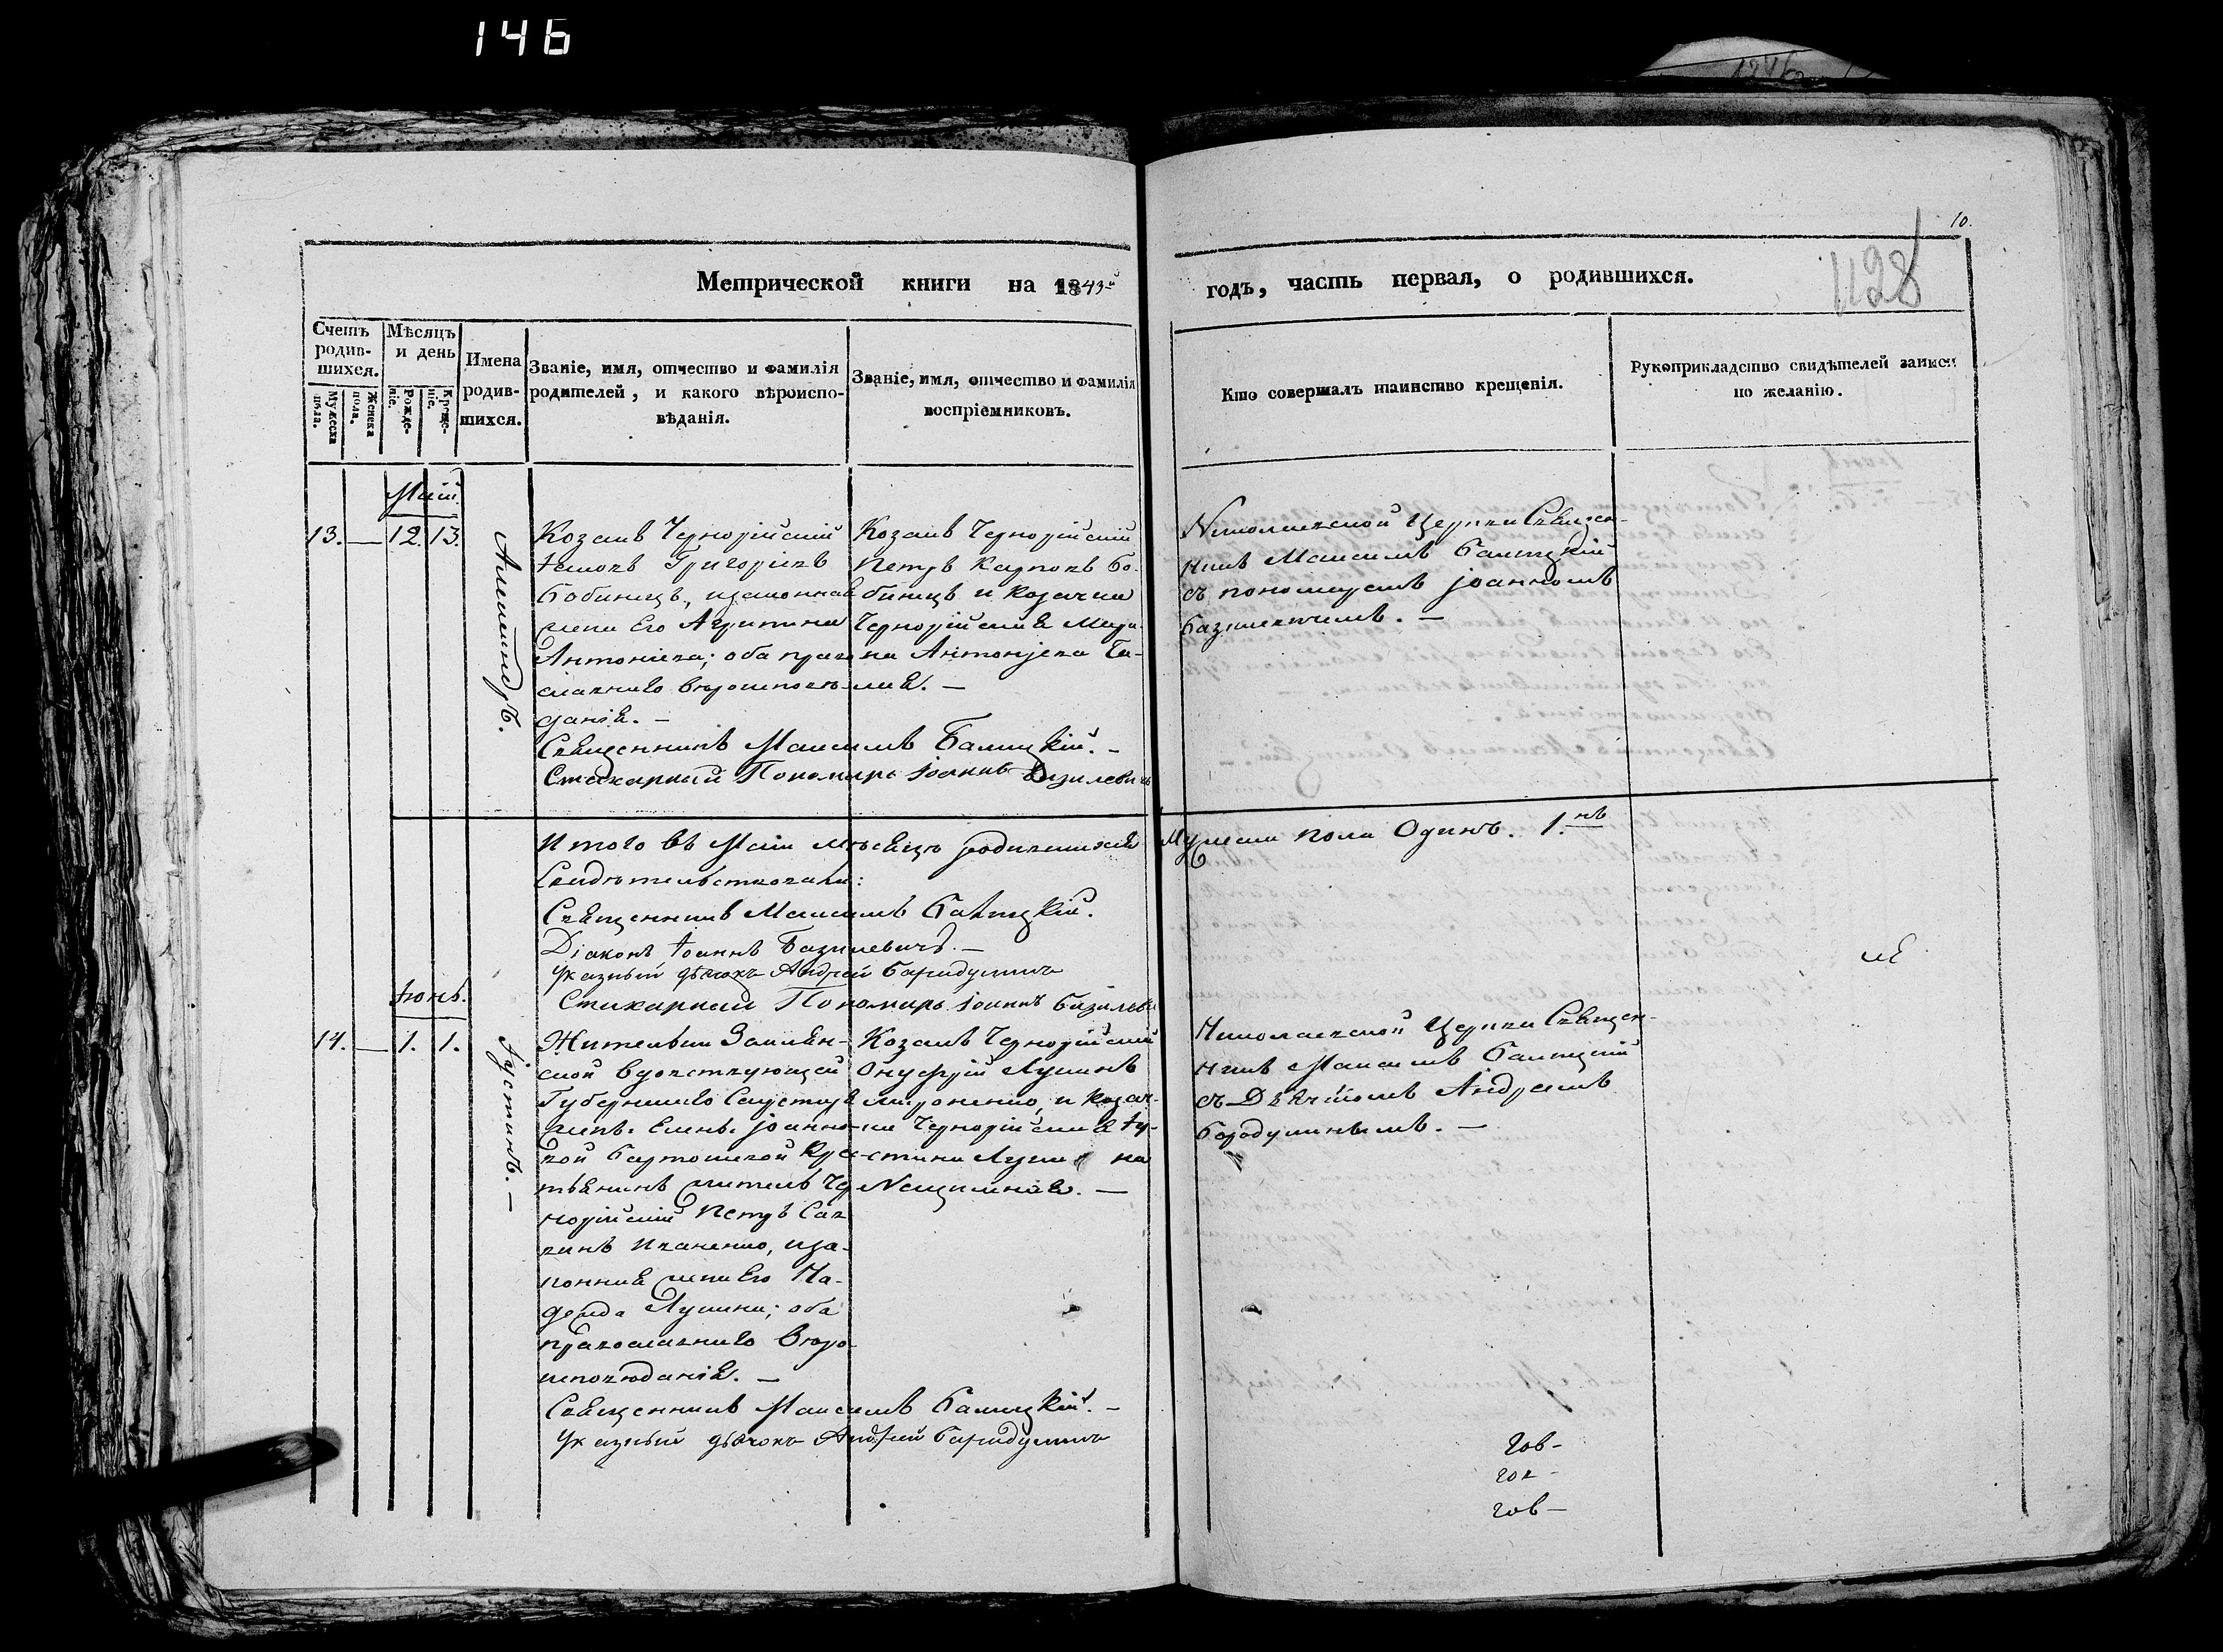 146
10.
1128
Метрической книги на 1843й
годъ, часть первая, о родившихся.
Счетъ родившихся.
Мужеска пола.
Женска пола.
Мѣсяцъ и день
Рожденіе.
Крещеніе.
Имена родившихся.
Званіе, имя, отчество и фамилія
родителей, и какого вѣроиспо-
вѣданія.
Званіе, имя, отчество и фамилія
воспріемниковъ.
Кто совершалъ таинство крещенія.
Рукоприкладство свидѣтелей записи
по желанію.
Маій
13. — 12. 13.
Александръ.
Козакъ Чернорійскій
Іаковъ Григоріевъ
Бобинецъ, и законная
жена Его Агрипина
Антоніева; оба право-
славнаго вѣроисповѣ-
данія. —
Священникъ Максимъ Балицкій. —
Стихарный Пономарь Іоаннъ Базилевичъ
Козакъ Чернорійскій
Петръ Карповъ Бо-
бинецъ и козачка
Чернорійская Мари-
на Антонјева
Николаевской Церкви Священ-
никъ Максимъ Балицкій
съ пономаремъ Іоанномъ
Базилевичемъ. —
Итого въ Маіи мѣсяцѣ родившихся
Мужеска пола Одинъ. 1.нъ
Свидѣтельствовали:
Священникъ Максимъ Балицкій.
Діаконъ Іоаннъ Базилевичъ. —
Указный дьячокъ Андрей
Стихарный Пономарь Іоаннъ
Іюнь.
14. — 1. 1.
Іустинъ. —
Жительки
Губернскаго
Петръ Сав-
винъ Иваненко, и за-
конная жена Его На-
дежда Лукина; оба
православнаго Вѣро-
исповѣданія. —
Священникъ Максимъ Балицкій. —
Указный дьячокъ Андрей
Козакъ Чернорійскій
Онуфрій Лукинъ
Мироненко, и Козач-
ка Чернорійская Іу-
стина
Николаевской Церкви Священ-
никъ Максимъ Балицкій
съ Дьячкомъ Андреемъ
Бородулинымъ. —
гов-
гов-
гов-